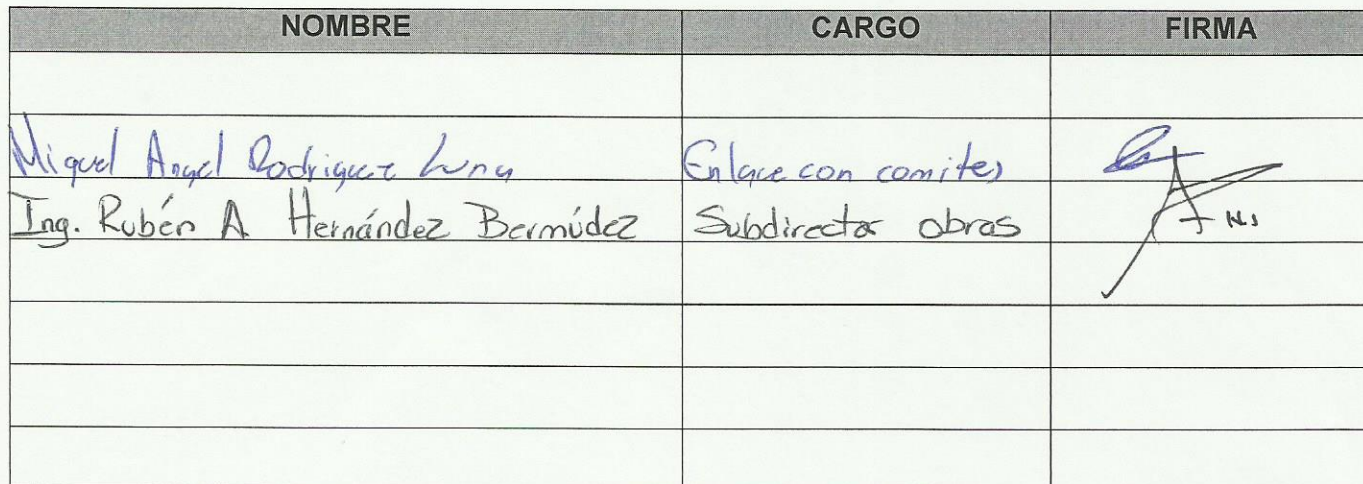 NOMBRE CARGO FIRMA
Miguel Angel Rodriguez Luna Enlace con comites
Ing. Rubén A Hernández Bermúdez Subdirector obras